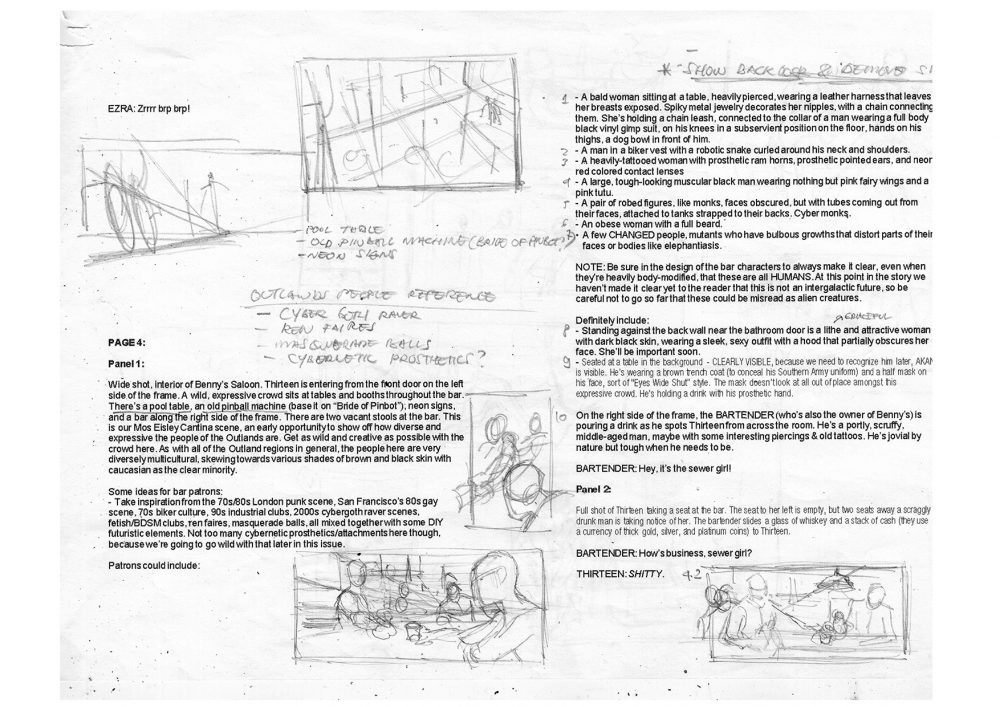 EZRA: Zrrrr brp brp!
POOL TABLE
- OLD PINBALL MACHINE (BRIDE OF PINBOT)
- NEON SIGNS
OUTLANDS PEOPLE REFERENCE
- CYBER GOTH RAVER
- REN FAIRES
- MASQUERADE BALLS
- CYBERNETIC PROSTHETICS?
PAGE 4:
Panel 1:
Wide shot, interior of Benny's Saloon. Thirteen is entering from the front door on the left
side of the frame. A wild, expressive crowd sits at tables and booths throughout the bar.
There's a pool table, an old pinball machine (base it on "Bride of Pinbot"); neon signs,
and a bar along the right side of the frame. There are two vacant stools at the bar. This
is our Mos Eisley Cantina scene, an early opportunity to show off how diverse and
expressive the people of the Outlands are. Get as wild and creative as possible with the
crowd here. As with all of the Outland regions in general, the people here are very
diversely multicultural, skewing towards various shades of brown and black skin with
caucasian as the clear minority.
Some ideas for bar patrons:
- Take inspiration from the 70s/80s London punk scene, San Francisco's 80s gay
scene, 70s biker culture, 90s industrial clubs, 2000s cybergoth raver scenes,
fetish/BDSM clubs, ren faires, masquerade balls, all mixed together with some DIY
futuristic elements. Not too many cybernetic prosthetics/attachments here though,
because we're going to go wild with that later in this issue.
Patrons could include:
* SHOW BACK DOOR &
1 - A bald woman sitting at a table, heavily pierced, wearing a leather harness that leaves
her breasts exposed. Spiky metal jewelry decorates her nipples, with a chain connecting
them. She's holding a chain leash, connected to the collar of a man wearing a full body
black vinyl gimp suit, on his knees in a subservient position on the floor, hands on his
thighs, a dog bowl in front of him.
2 - A man in a biker vest with a robotic snake curled around his neck and shoulders.
3 - A heavily-tattooed woman with prosthetic ram horns, prosthetic pointed ears, and neon
red colored contact lenses
4 - A large, tough-looking muscular black man wearing nothing but pink fairy wings and a
pink tutu.
5 - A pair of robed figures, like monks, faces obscured, but with tubes coming out from
their faces, attached to tanks strapped to their backs. Cyber monks.
6 - An obese woman with a full beard.
7 - A few CHANGED people, mutants who have bulbous growths that distort parts of their
faces or bodies like elephantiasis.
NOTE: Be sure in the design of the bar characters to always make it clear, even when
they're heavily body-modified, that these are all HUMANS. At this point in the story we
haven't made it clear yet to the reader that this is not an intergalactic future, so be
careful not to go so far that these could be misread as alien creatures.
Definitely include:
GRACEFUL
8 - Standing against the back wall near the bathroom door is a lithe and attractive woman
with dark black skin, wearing a sleek, sexy outfit with a hood that partially obscures her
face. She'll be important soon.
9 - Seated at a table in the background - CLEARLY VISIBLE, because we need to recognize him later, AKAN
is visible. He's wearing a brown trench coat (to conceal his Southern Army uniform) and a half mask on
his face, sort of "Eyes Wide Shut" style. The mask doesn't look at all out of place amongst this
expressive crowd. He's holding a drink with his prosthetic hand.
10 On the right side of the frame, the BARTENDER (who's also the owner of Benny's) is
pouring a drink as he spots Thirteen from across the room. He's a portly, scruffy,
middle-aged man, maybe with some interesting piercings & old tattoos. He's jovial by
nature but tough when he needs to be.
BARTENDER: Hey, it's the sewer girl!
Panel 2:
Full shot of Thirteen taking a seat at the bar. The seat to her left is empty, but two seats away a scraggly
drunk man is taking notice of her. The bartender slides a glass of whiskey and a stack of cash (they use
a currency of thick gold, silver, and platinum coins) to Thirteen.
BARTENDER: How's business, sewer girl?
THIRTEEN: SHITTY.
4.2